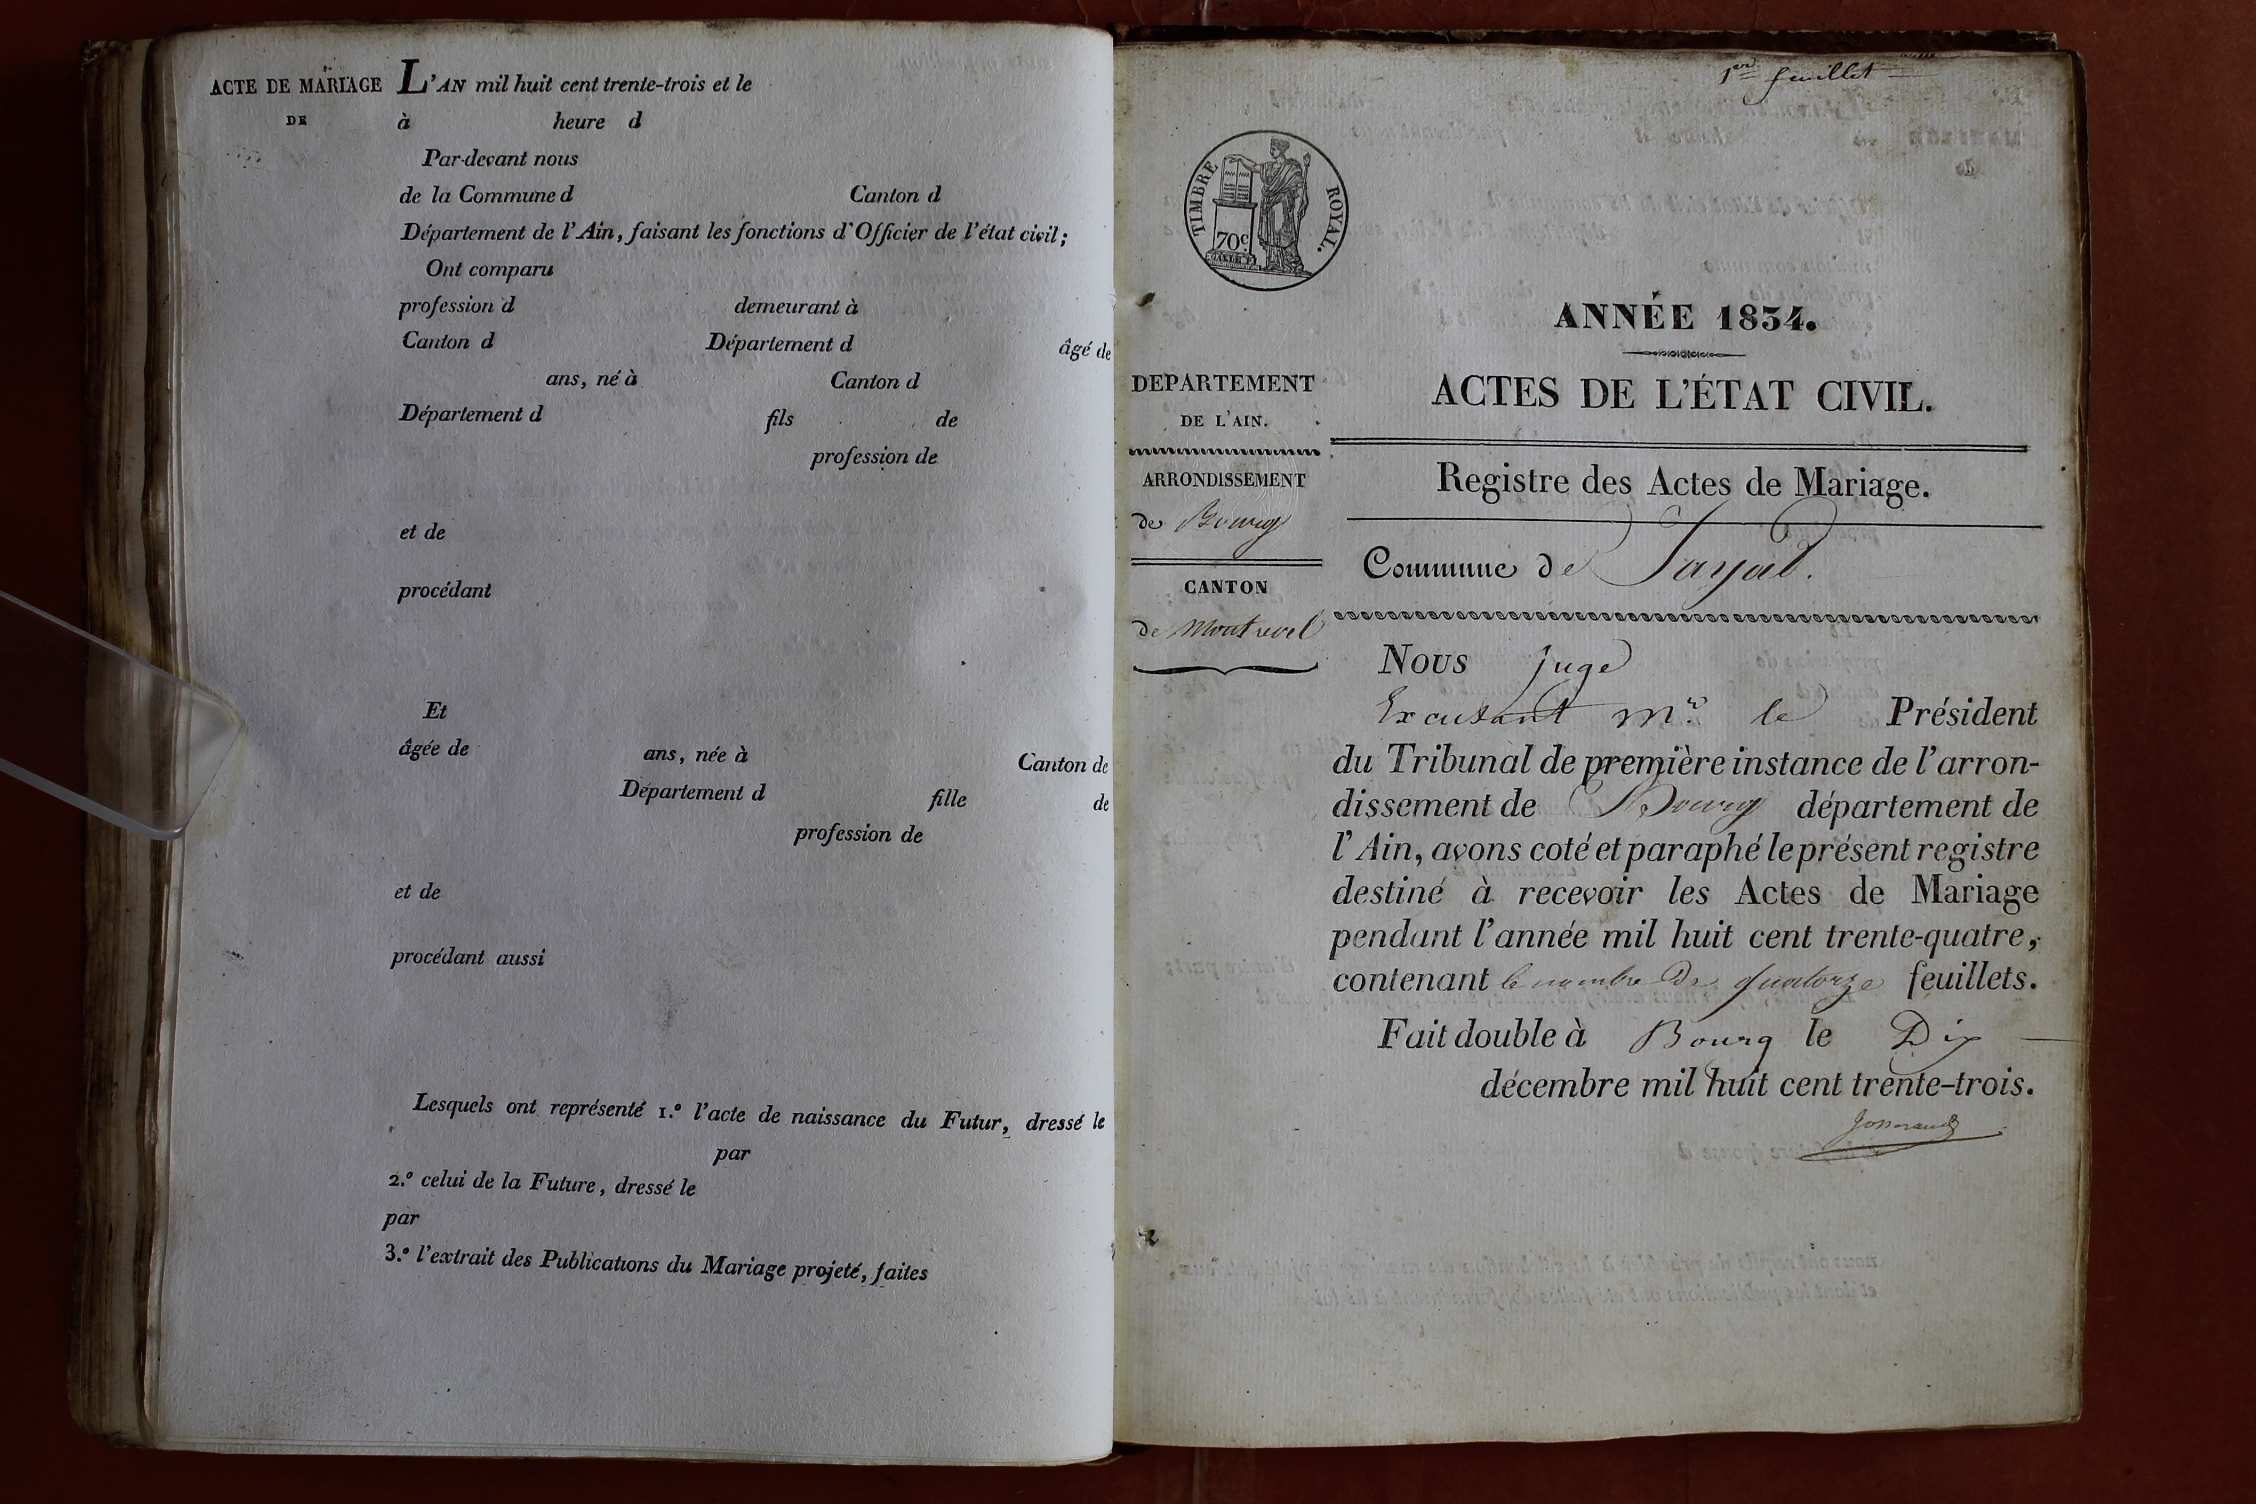 ACTE DE MARIAGE L'AN mil huit cent trente-trois et le
DE à heure d
Par-devant nous
de la Commune d Canton d
Département de l'Ain, faisant les fonctions d'Officier de l'état civil;
Ont comparu
profession d demeurant à
Canton d Département d âgé de
ans, né à Canton d
Département d fils de
profession de
et de
procédant
Et
âgée de ans, née à Canton de
Département d fille de
profession de
et de
procédant aussi
Lesquels ont représenté 1.º l'acte de naissance du Futur, dressé le
par
2.º celui de la Future, dressé le
par
3.º l'extrait des Publications du Mariage projeté, faites
1er feuillet
TIMBRE ROYAL.
70c
ANNÉE 1834.
DEPARTEMENT
DE L'AIN.
ARRONDISSEMENT
de Bourg
CANTON
de Montrevel
ACTES DE L'ÉTAT CIVIL.
Registre des Actes de Mariage.
Commune de Jayat.
Nous Juge
Excusant Mr. le Président
du Tribunal de première instance de l'arron-
dissement de Bourg département de
l'Ain, avons coté et paraphé le présent registre
destiné à recevoir les Actes de Mariage
pendant l'année mil huit cent trente-quatre,
contenant le nombre de quatorze feuillets.
Fait double à Bourg le Dix
décembre mil huit cent trente-trois.